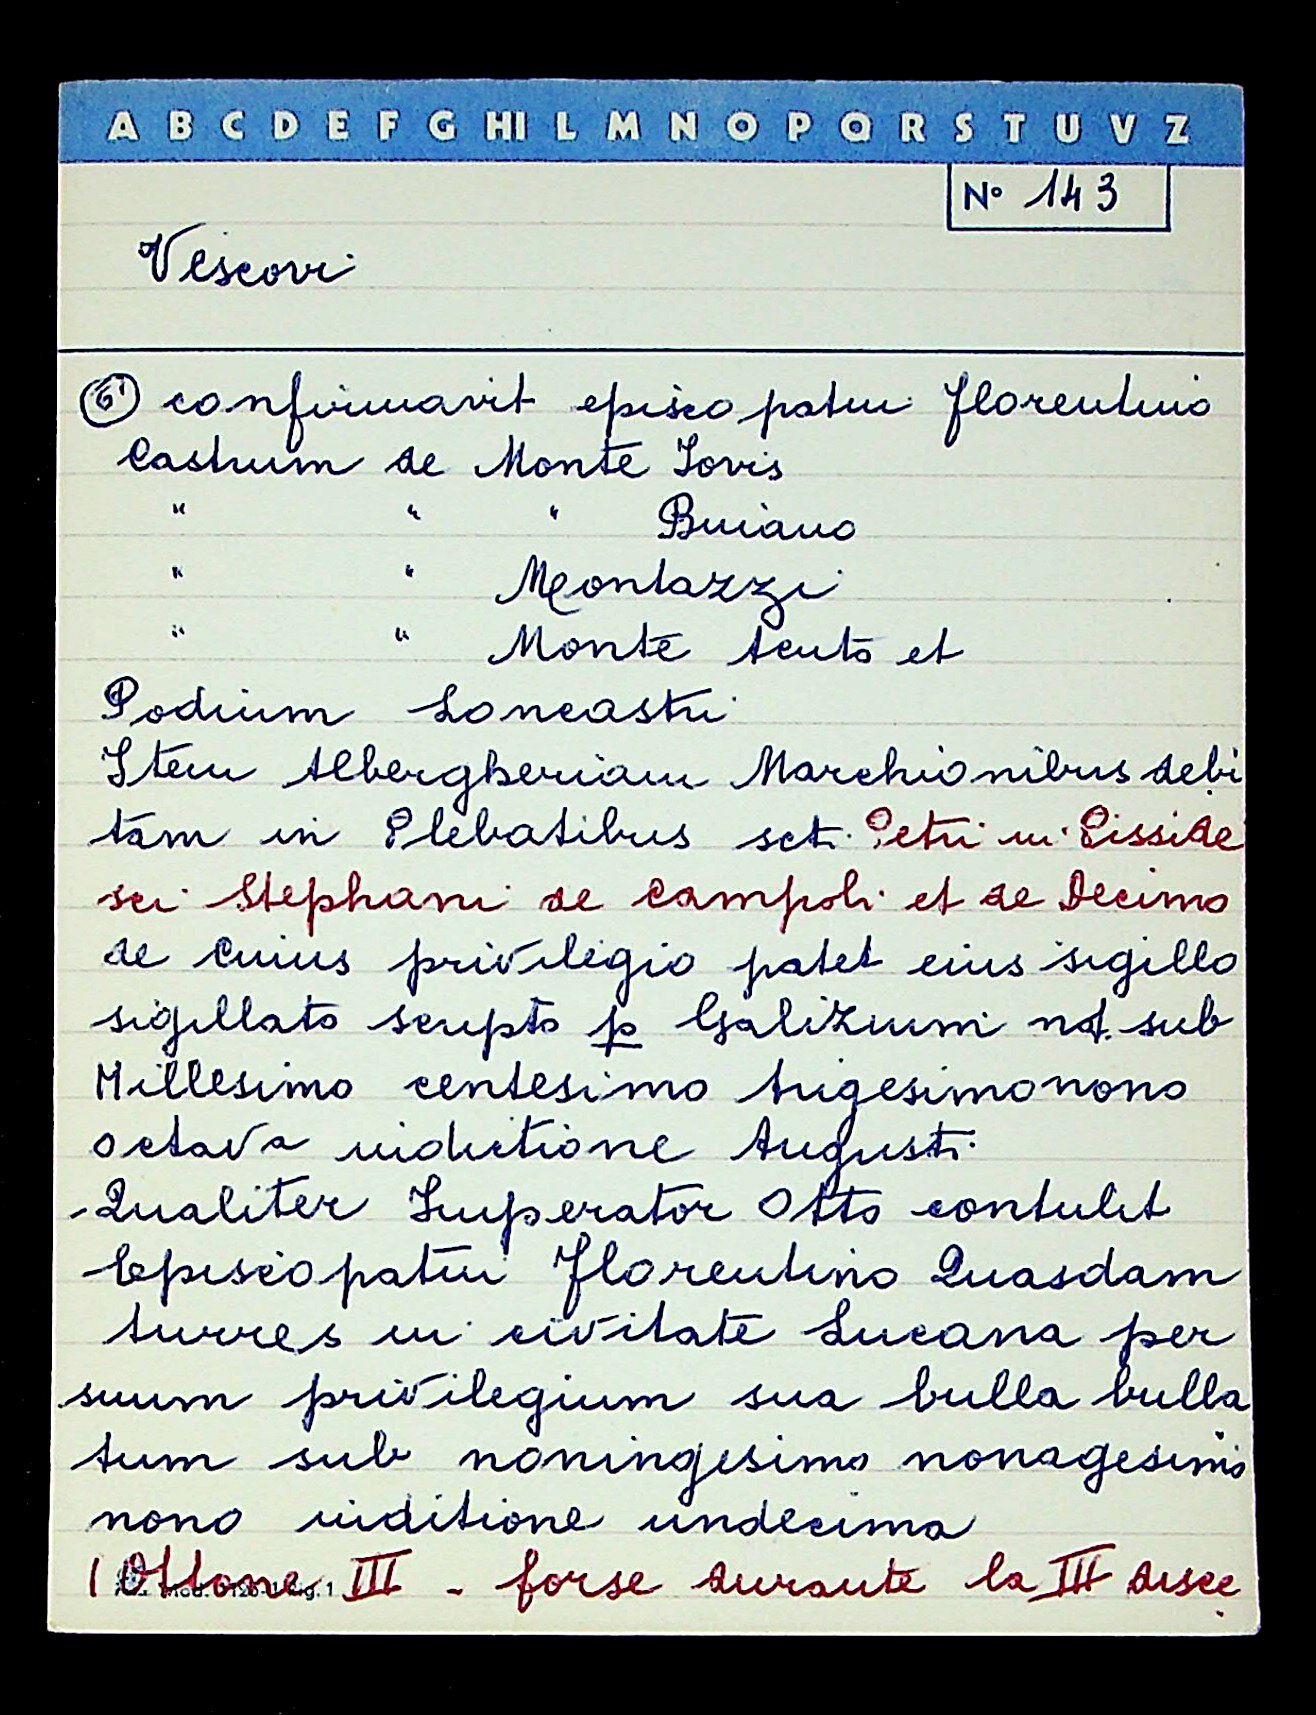 A B C D E F G HI L M N O P Q R S T U V Z
N° 143
Vescovi
6' confirmavit episcopatui florentino
Castrum de Monte Iovis
" " " Buiano
" " Montazzi
" " Monte Acuto et
Podium Loncastri
Item Albergheriam Marchionibus debi
tam in Plebatibus sct. Petri in Pisside
sci Stephani de Campoli et de Decimo
de Cuius privilegio patet eius sigillo
sigillato scripto p Galizium not. sub
Millesimo centesimo trigesimonono
octava indictione Augusti
- Qualiter Imperator Otto contulit
Episcopatui Florentino Quasdam
turres in civitate Lucana per
suum privilegium sua bulla bulla
tum sub noningesimo nonagesimo
nono inditione undecima
(Ottone III - forse durante la III disce